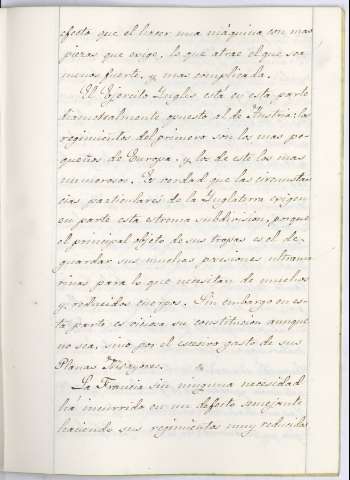 efecto que el hacer una máquina con mas
piezas que exige, lo que atrae el que sea
menos fuerte, y mas complicada.
El Ejercito Ingles está en esta parte
diametralmente opuesto al de Austria; los
regimientos del primero son los mas pe-
queños de Europa, y los de este los mas
numerosos. Es verdad que las circunstan
cias particulares de la Inglaterra exigen
en parte esta estrema subdivision, porque
el principal objeto de sus tropas es el de
guardar sus muchas posesiones ultrama
rinas para lo que necesitan de muchos
y reducidos cuerpos. Sin embargo en es-
ta parte es viciosa su constitucion aunque
no sea, sino por el escesivo gasto de sus
Planas Mayores.
La Francia sin ninguna necesidad
há incurrido en un defecto semejante
haciendo sus regimientos muy reducidos